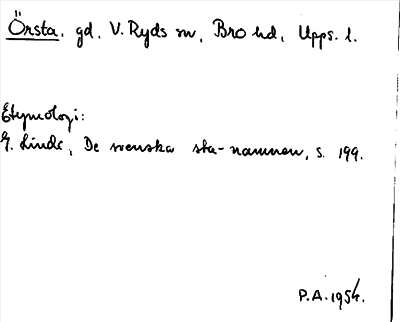 Örsta, gd, V. Ryds sn, Bro hd, Upps. l.
Etymologi:
G. Linde, De svenska sta-namnen, s. 199.
P.A. 1954.